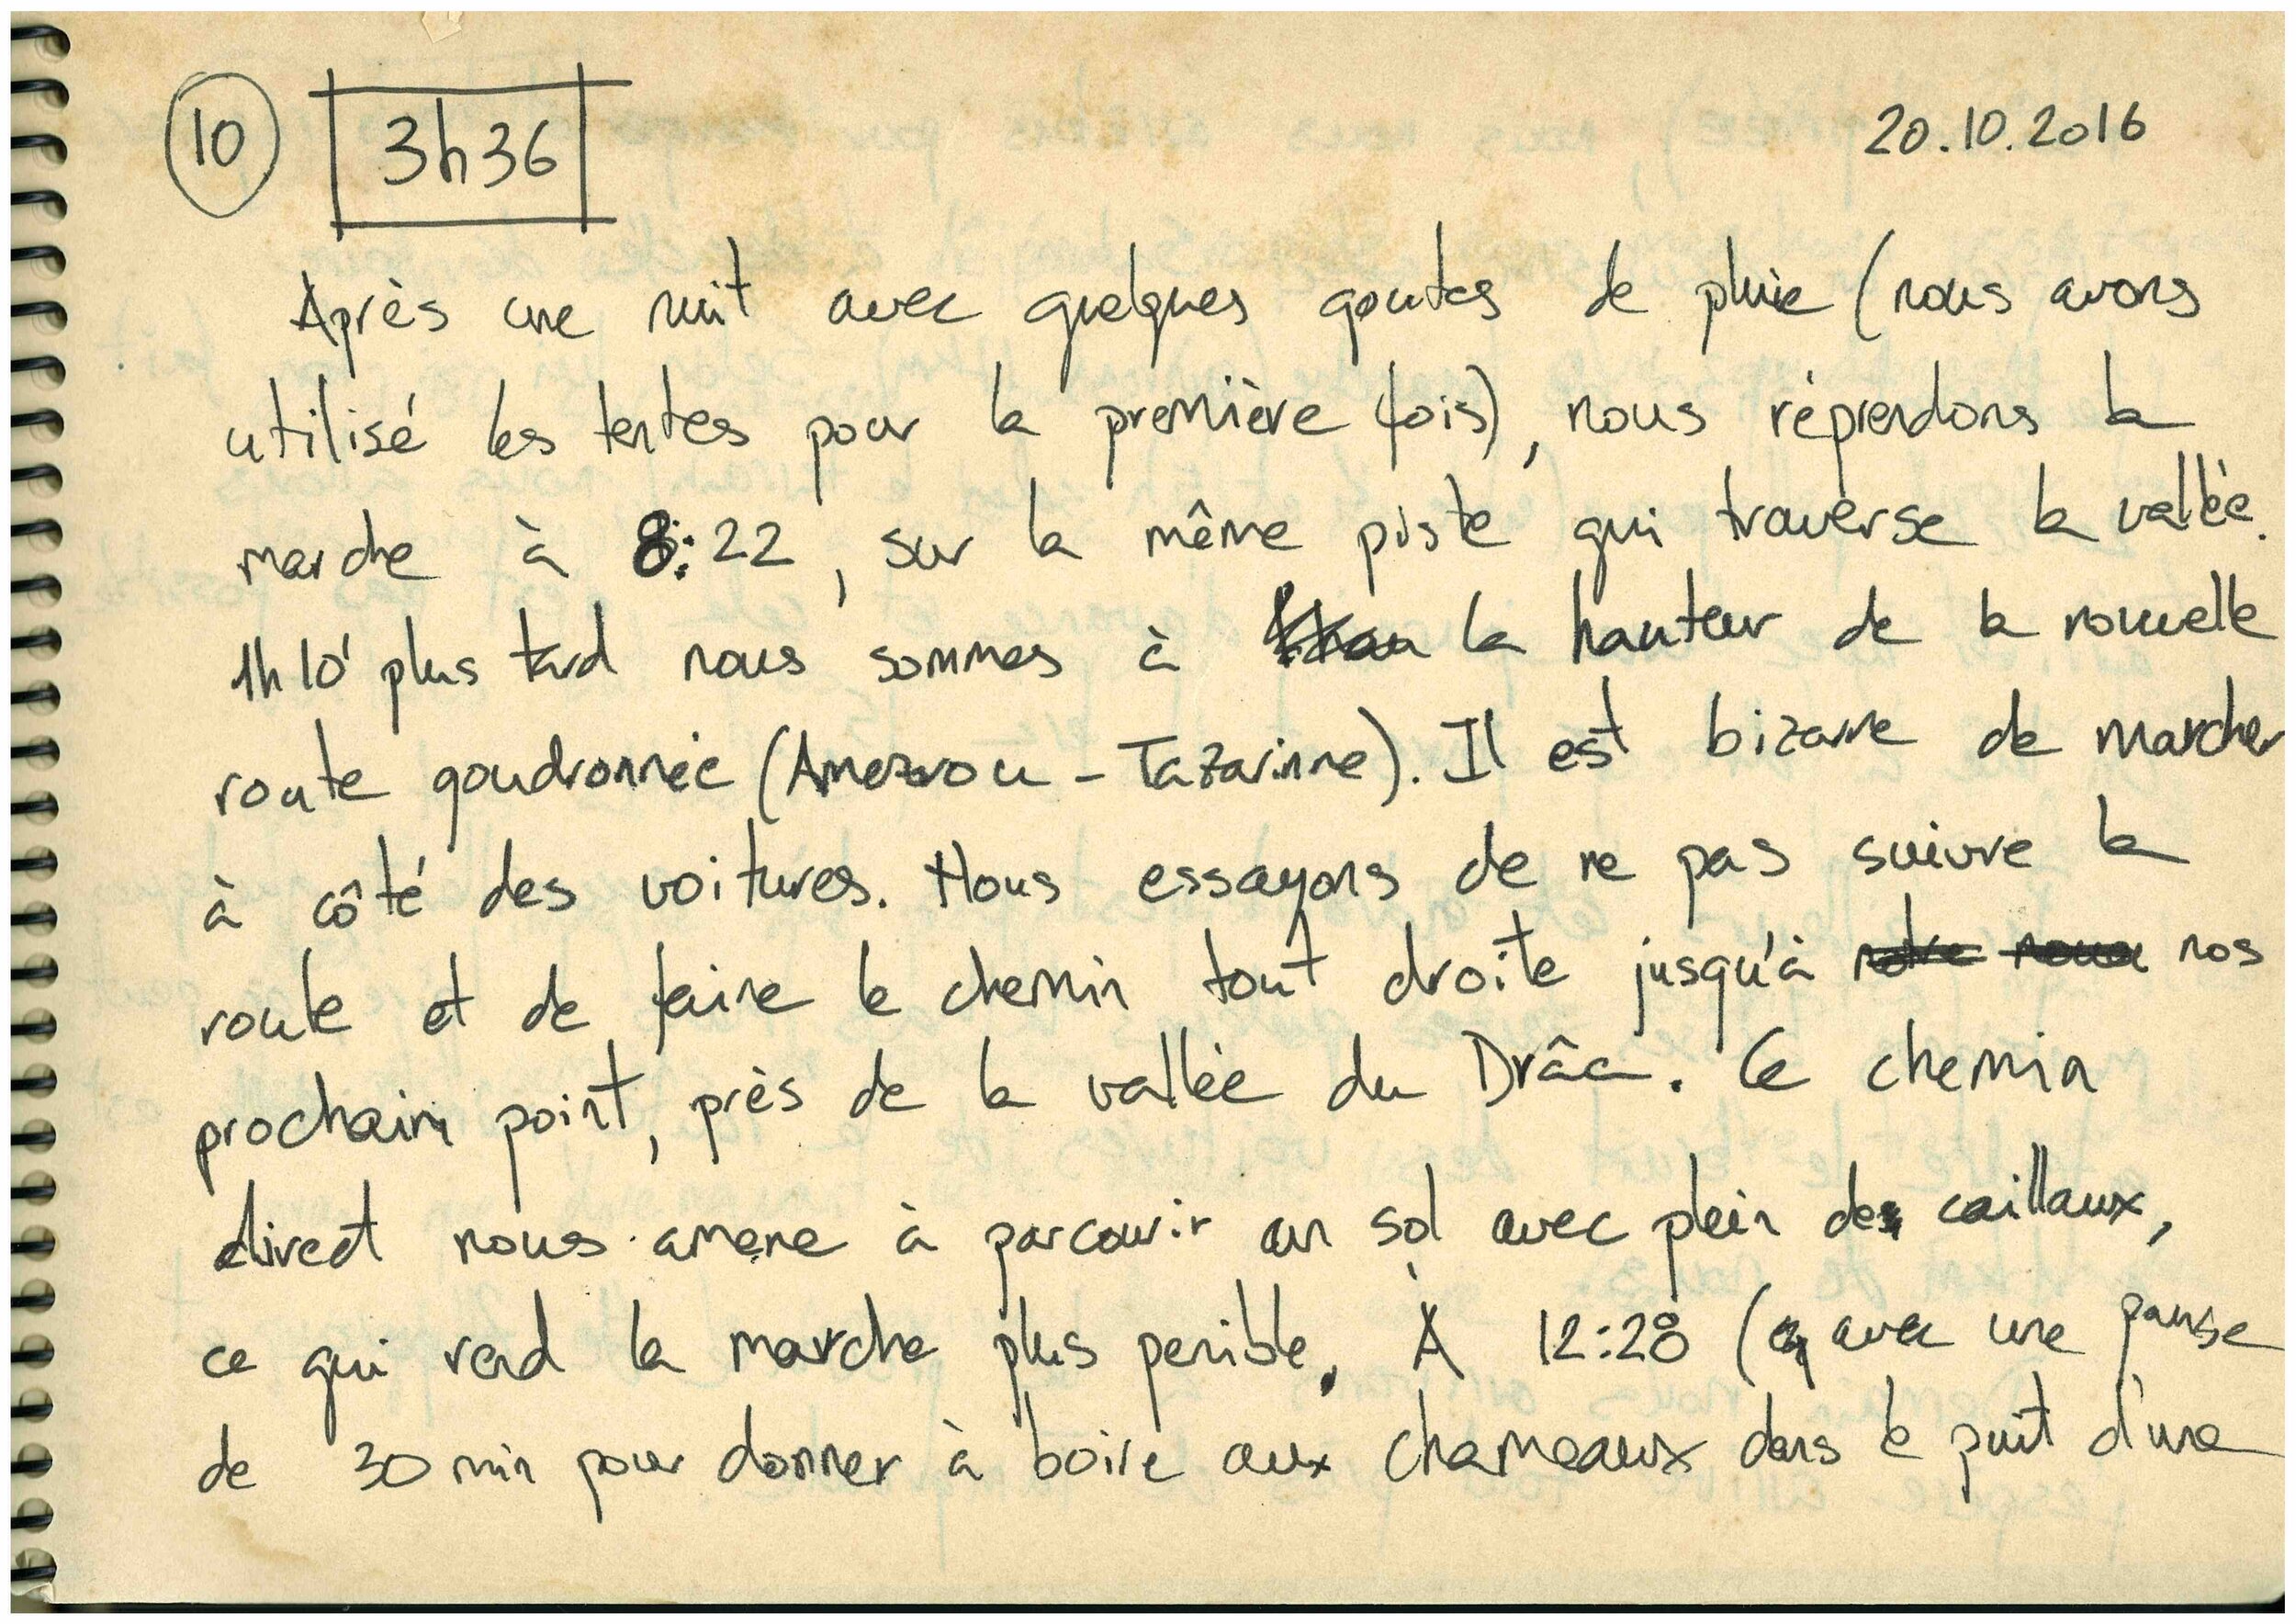 10 3h36 20.10.2016
Après une nuit avec quelques goutes de pluie (nous avons
utilisé les tentes pour la première fois), nous réprendons la
marche à 8:22, sur la même piste qui traverse la vallée.
1h10' plus tard nous sommes à la hauteur de la nouvelle
route goudronnée (Amezrou - Tazarinne). Il est bizarre de marcher
à côté des voitures. Nous essayons de ne pas suivre la
route et de faire le chemin tout droite jusqu'à notre nos
prochain point, près de la vallée du Drâa. Ce chemin
direct nous amene à parcourir un sol avec plein des caillaux,
ce qui rend la marche plus penible. À 12:28 (avec une pause
de 30 min pour donner à boire aux chameaux dans le puit d'une